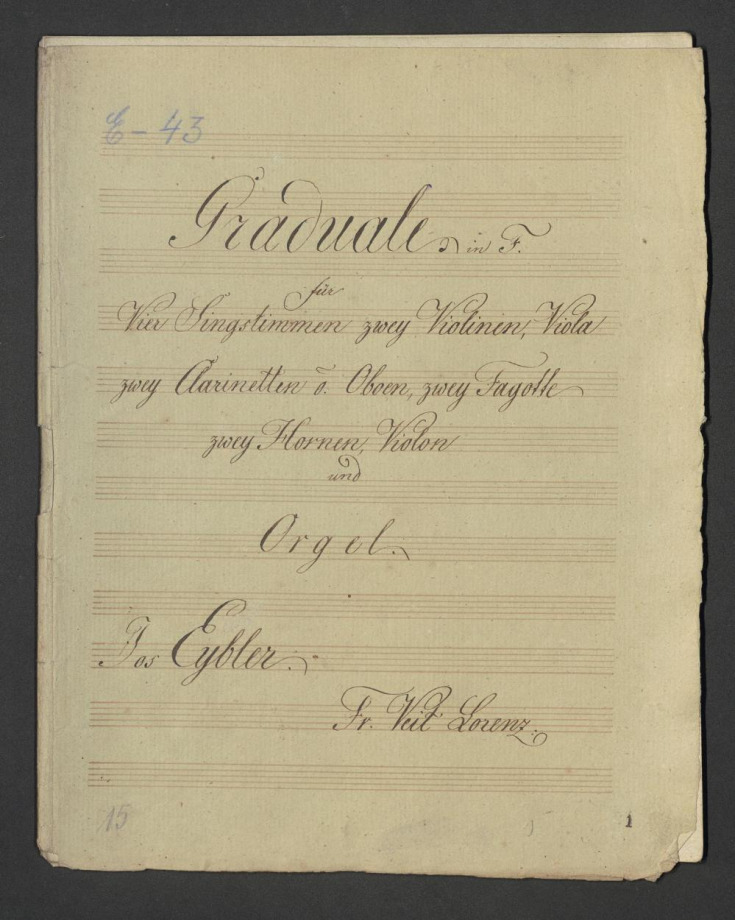 E - 43
Graduale in F.
für
Vier Singstimmen zwey Violinen, Viola
zwey Clarinetten o. Oboen, zwey Fagotte
zwey Hornen, Violon
und
Orgel.
Jos Eybler.
Fr. Veit Lorenz.
15
1